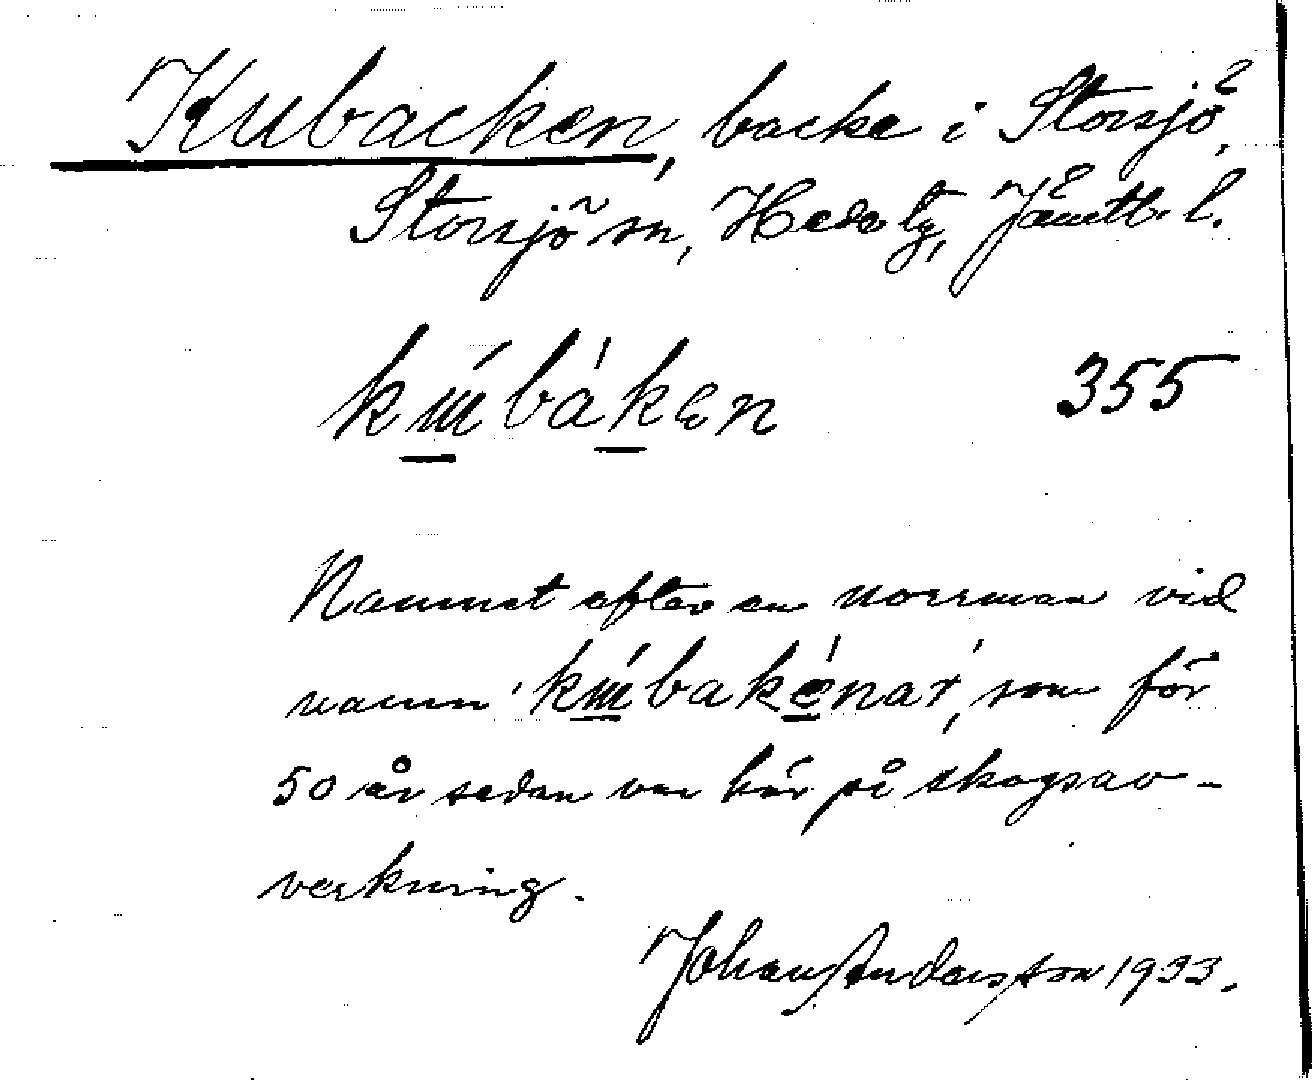 Kubacken, backe i Storsjö,
Storsjö sn, Hede tg, Jämtl. l.
kɯ́bàken 355
Namnet efter en norrman vid
namn 'kɯ́bakènar', som för
50 år sedan var här på skogsav-
verkning.
Johan Andersson 1933.